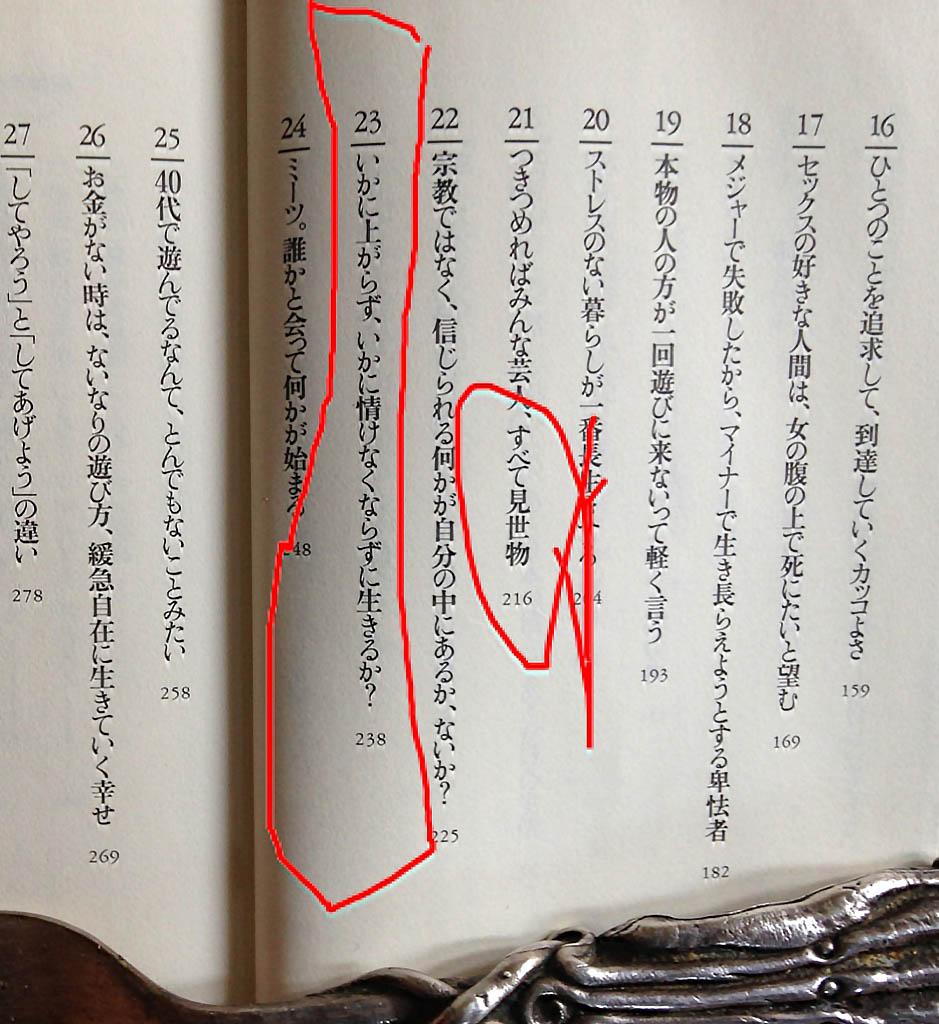 16 ひとつのことを追求して、到達していくカッコよさ 159
17 セックスの好きな人間は、女の腹の上で死にたいと望む 169
18 メジャーで失敗したから、マイナーで生き長らえようとする卑怯者 182
19 本物の人の方が一回遊びに来ないって軽く言う 193
20 ストレスのない暮らしが一番長生
21 つきつめればみんな芸人、すべて見世物 216
22 宗教ではなく、信じられる何かが自分の中にあるか、ないか? 225
23 いかに上がらず、いかに情けなくならずに生きるか? 238
24 ミーツ。誰かと会って何かが始まる 248
25 40代で遊んでるなんて、とんでもないことみたい 258
26 お金がない時は、ないなりの遊び方、緩急自在に生きていく幸せ 269
27 「してやろう」と「してあげよう」の違い 278